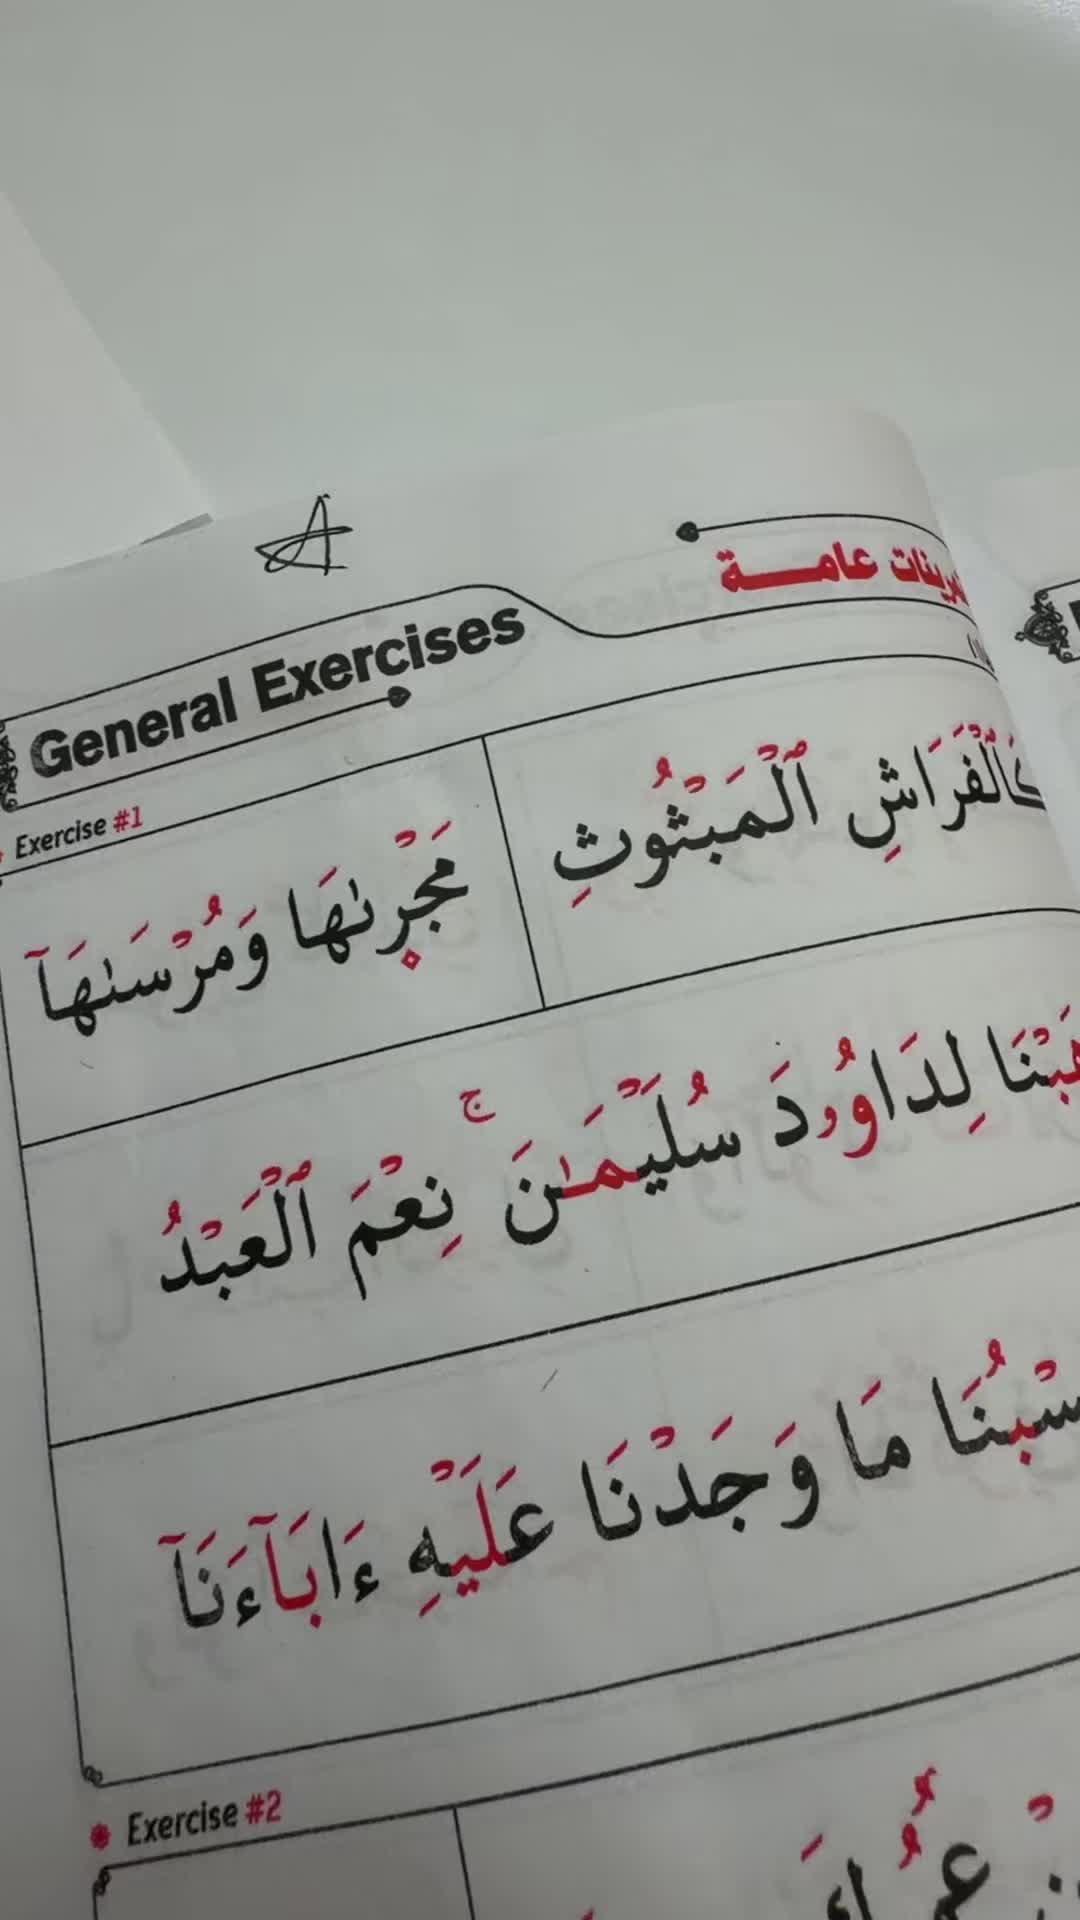 عامة
General Exercises
Exercise #1
كَٱلْفَرَاشِ ٱلْمَبْثُوثِ
مَجْر۪ىٰهَا وَمُرْسَىٰهَآ
لِدَاوُۥدَ سُلَيْمَٰنَ ۚ نِعْمَ ٱلْعَبْدُ
مَا وَجَدْنَا عَلَيْهِ ءَابَآءَنَآ
Exercise #2